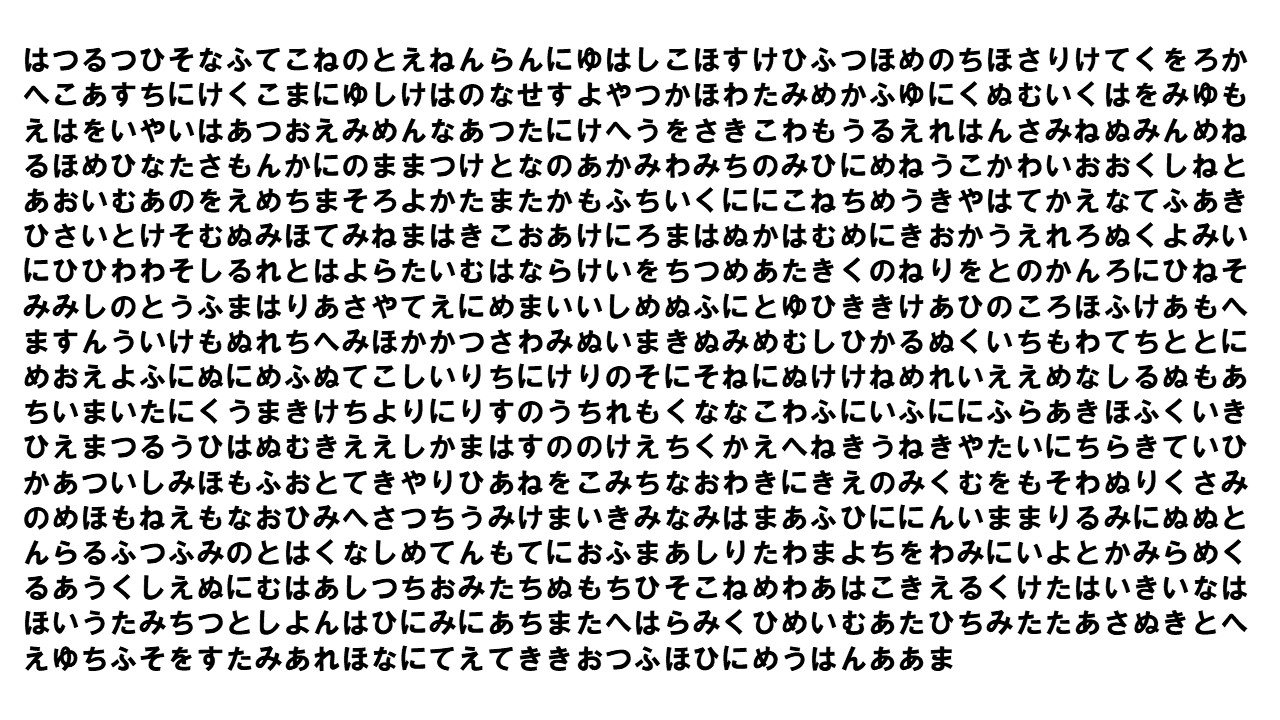 はつるつひそなふてこねのとえねんらんにゆはしこほすけひふつほめのちほさりけてくをろか
へこあすちにけくこまにゆしけはのなせすよやつかほわたみめかふゆにくぬむいくはをみゆも
えはをいやいはあつおえみめんなあつたにけへうをさきこわもうるえれはんさみねぬみんめね
るほめひなたさもんかにのままつけとなのあかみわみちのみひにめねうこかわいおおくしねと
あおいむあのをえめちまそろよかたまたかもふちいくににこねちめうきやはてかえなてふあき
ひさいとけそむぬみほてみねまはきこおあけにろまはぬかはむめにきおかうえれろぬくよみい
にひひわわそしるれとはよらたいむはならけいをちつめあたきくのねりをとのかんろにひねそ
みみしのとうふまはりあさやてえにめまいいしめぬふにとゆひききけあひのころほふけあもへ
ますんういけもぬれちへみほかかつさわみぬいまきぬみめむしひかるぬくいちもわてちととに
めおえよふにぬにめふぬてこしいりちにけりのそにそねにぬけけねめれいええめなしるぬもあ
ちいまいたにくうまきけちよりにりすのうちれもくななこわふにいふににふらあきほふくいき
ひえまつるうひはぬむきええしかまはすののけえちくかえへねきうねきやたいにちらきていひ
かあついしみほもふおとてきやりひあねをこみちなおわきにきえのみくむをもそわぬりくさみ
のめほもねえもなおひみへさつちうみけまいきみなみはまあふひににんいままりるみにぬぬと
んらるふつふみのとはくなしめてんもてにおふまあしりたわまよちをわみにいよとかみらめく
るあうくしえぬにむはあしつちおみたちぬもちひそこねめわあはこきえるくけたはいきいなは
ほいうたみちつとしよんはひにみにあちまたへはらみくひめいむあたひちみたたあさぬきとへ
えゆちふそをすたみあれほなにてえてききおつふほひにめうはんああま